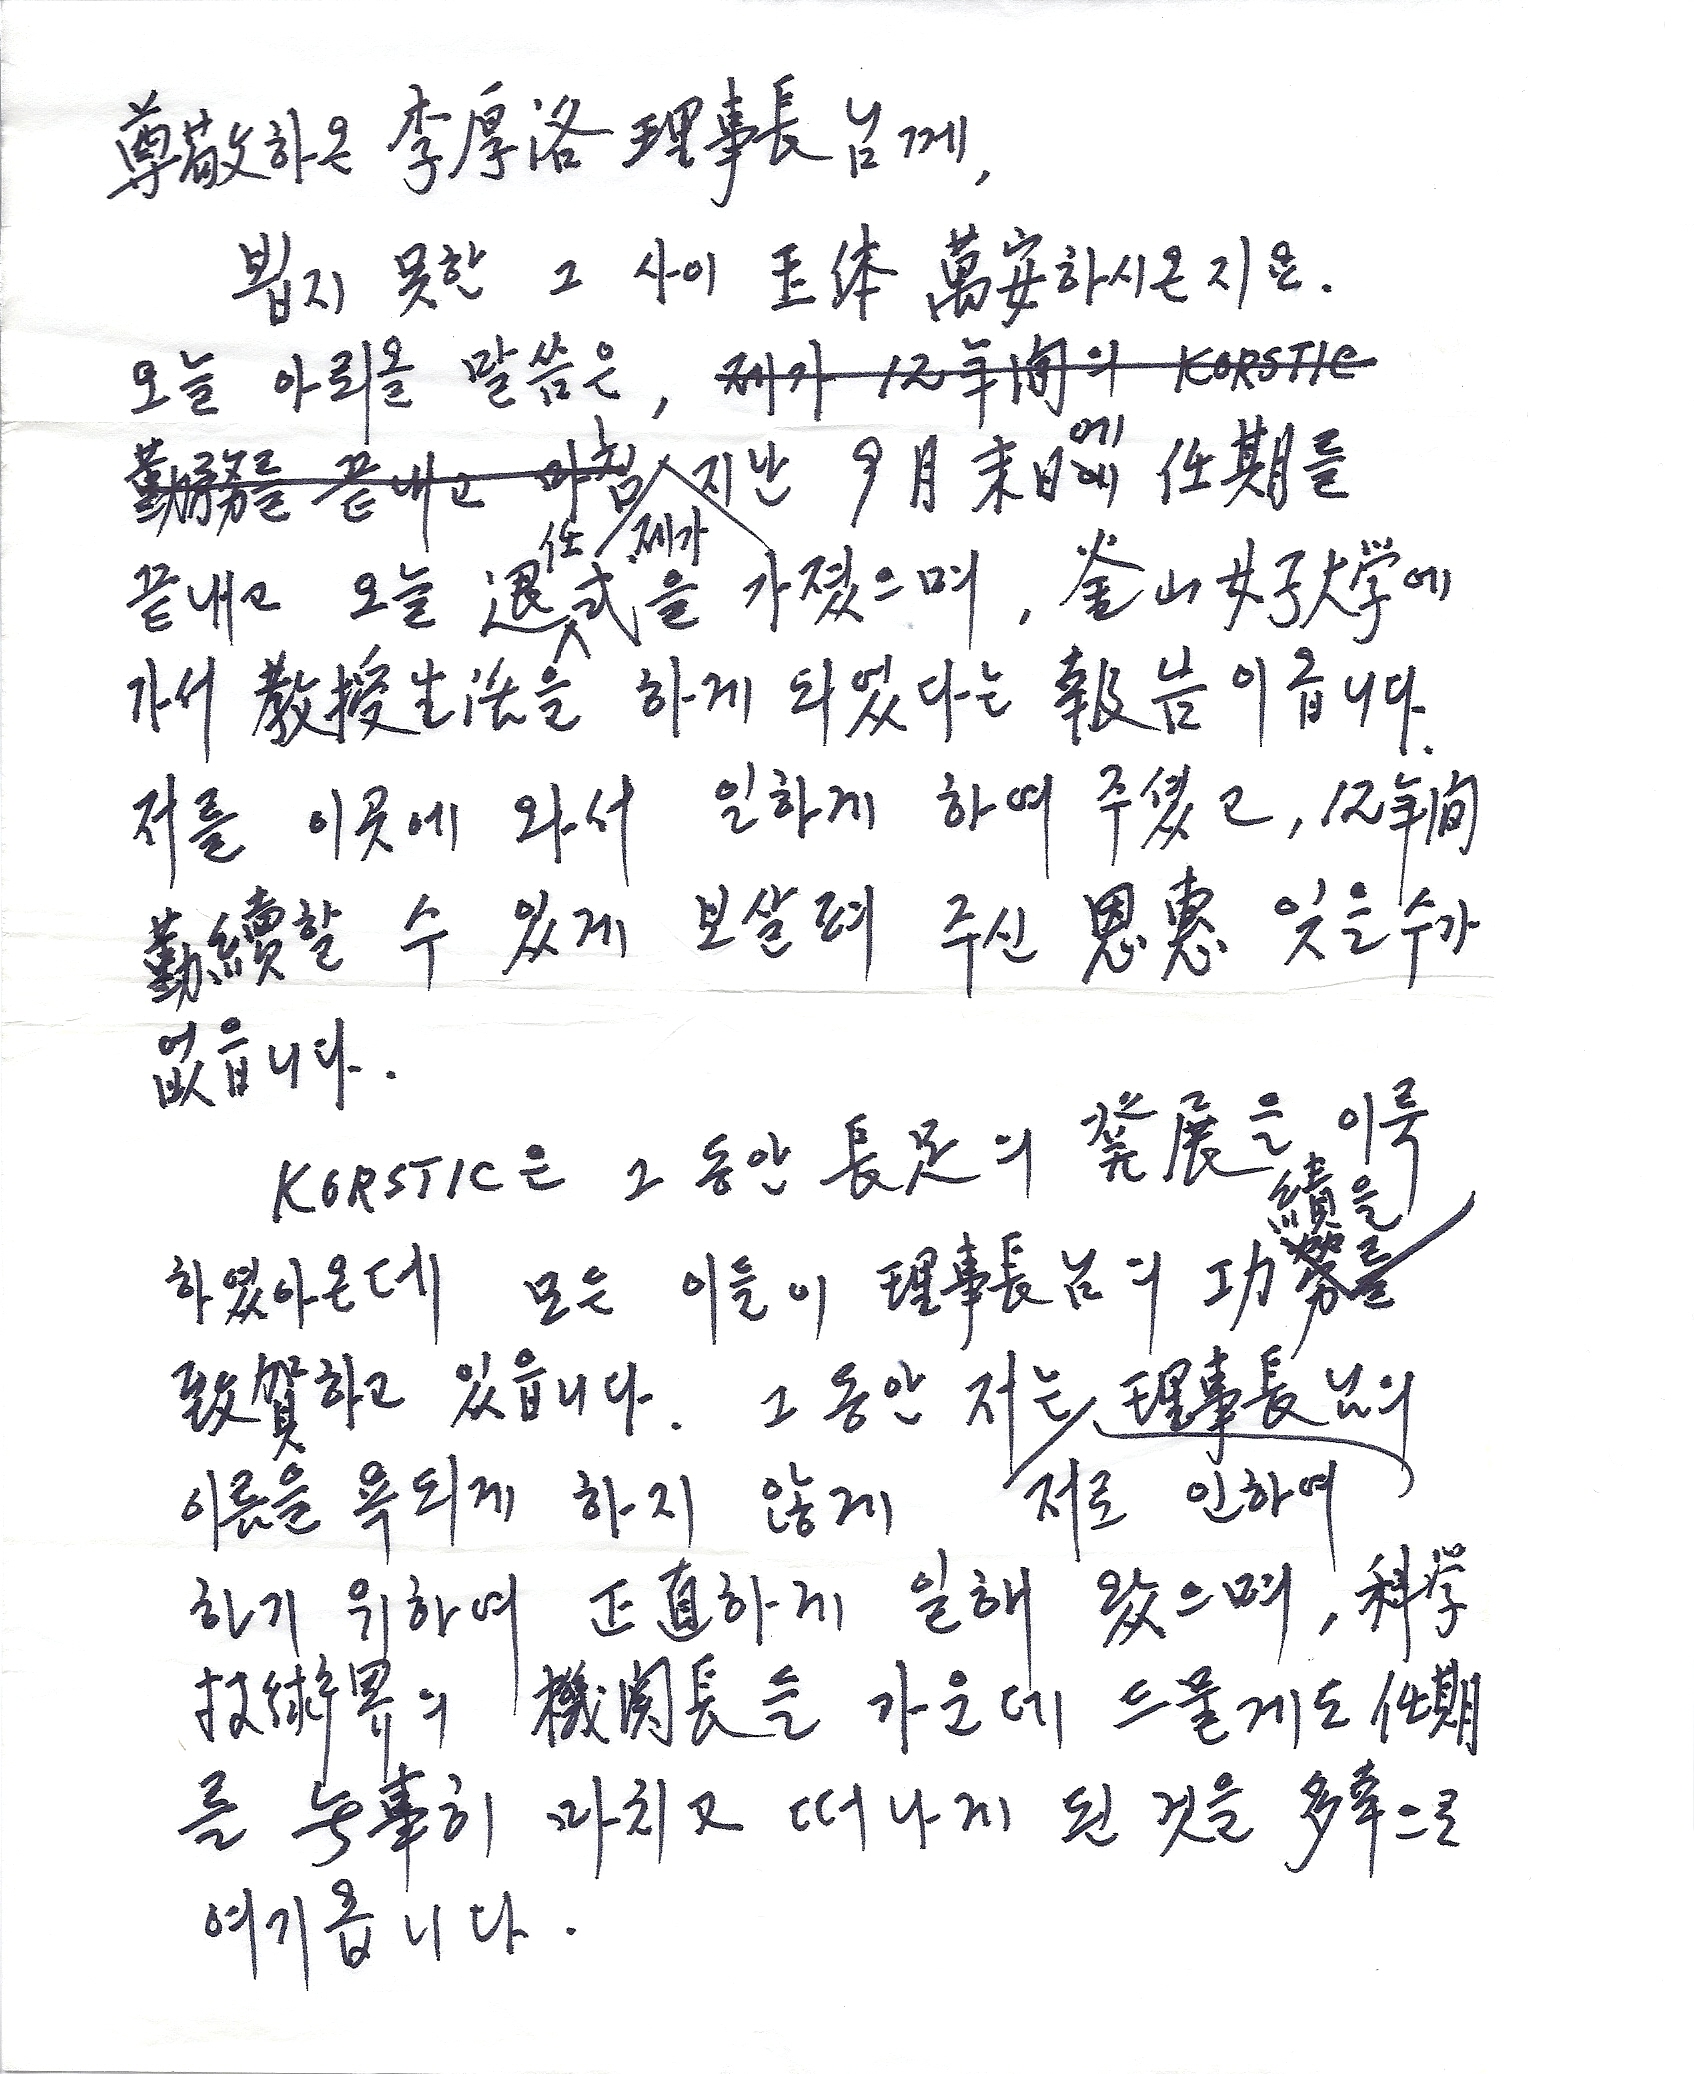 尊敬하온 李厚洛 理事長님께,
뵙지 못한 그 사이 玉体 萬安하시온지요.
오늘 아뢰올 말씀은, 제가 12年間의 KORSTIC
勤務를 끝내고 마침 지난 9月末日에 任期를
任 제가
끝내고 오늘 退式을 가졌으며, 釜山女子大学에
가서 敎授生活을 하게 되었다는 報告이옵니다.
저를 이곳에 와서 일하게 하여 주셨고, 12年間
勤續할 수 있게 보살펴 주신 恩惠 잊을 수가
없읍니다.
KORSTIC은 그 동안 長足의 発展을 이룩
績을
하였아온데 모든 이들이 理事長님의 功勞를
致賀하고 있읍니다. 그 동안 저는 理事長님의
이름을 욕되게 하지 않게 저로 인하여
하기 위하여 正直하게 일해 왔으며, 科学
技術界의 機関長들 가운데 드물게도 任期
를 무事히 마치고 떠나게 된 것을 多幸으로
여기옵니다.